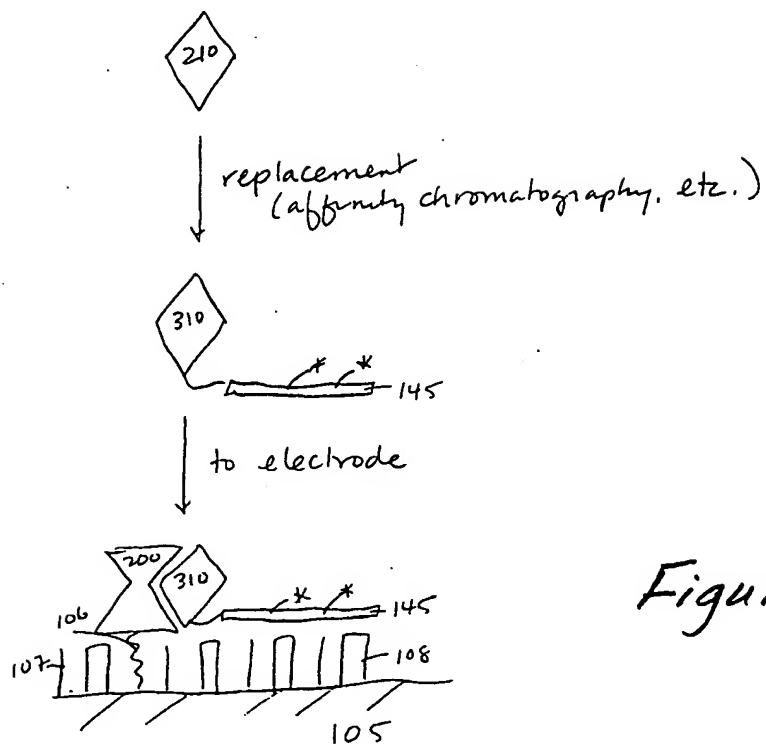 210
replacement
(affinity chromatography, etc.)
310
* *
145
to electrode
200
310
* *
145
106
107
108
105
Figu